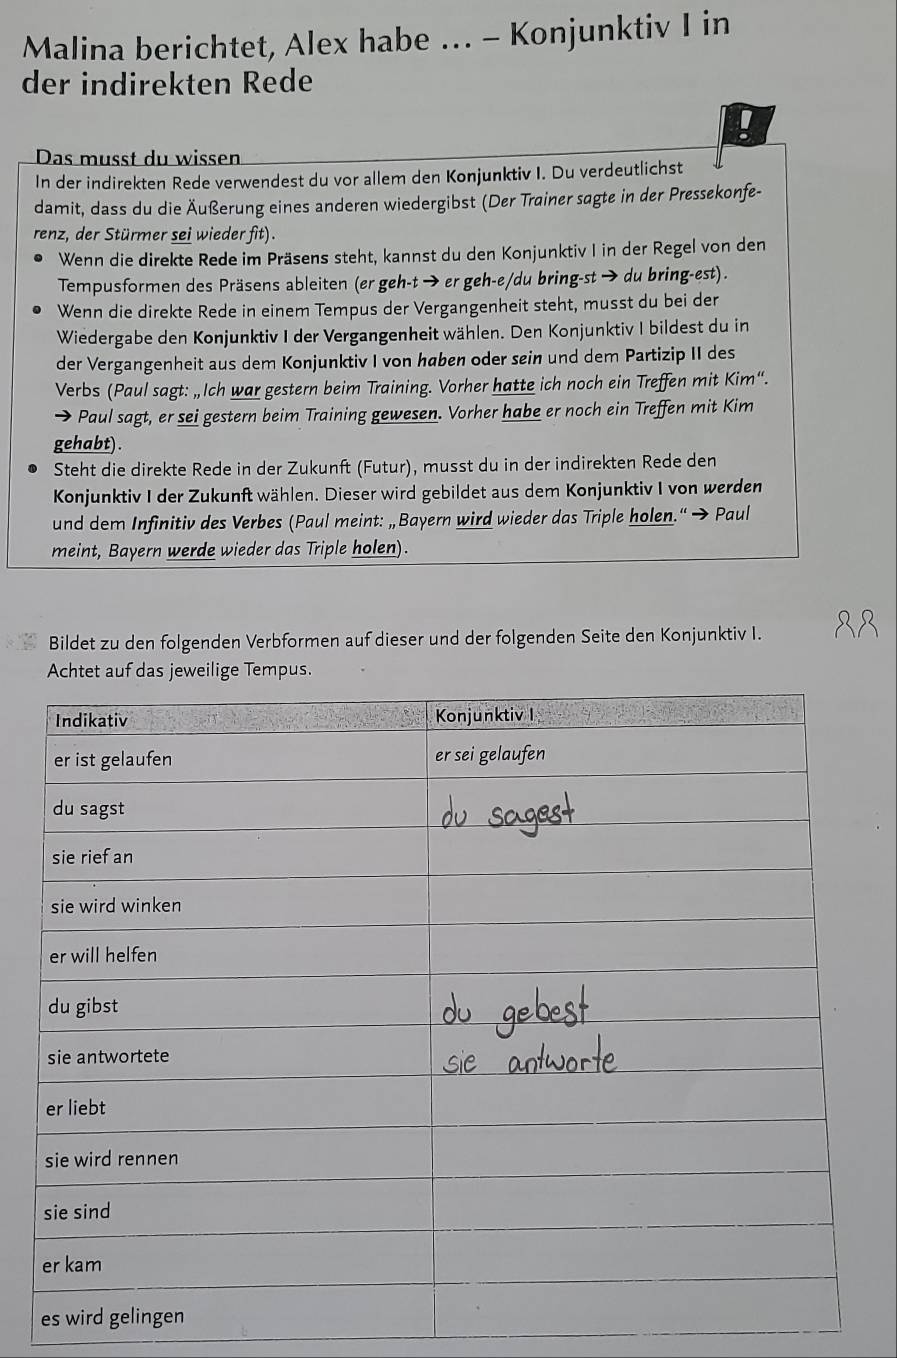 Malina berichtet, Alex habe ... – Konjunktiv I in
der indirekten Rede
!
Das musst du wissen
In der indirekten Rede verwendest du vor allem den Konjunktiv I. Du verdeutlichst
damit, dass du die Äußerung eines anderen wiedergibst (Der Trainer sagte in der Pressekonfe-
renz, der Stürmer sei wieder fit).
• Wenn die direkte Rede im Präsens steht, kannst du den Konjunktiv I in der Regel von den
Tempusformen des Präsens ableiten (er geh-t → er geh-e/du bring-st → du bring-est).
• Wenn die direkte Rede in einem Tempus der Vergangenheit steht, musst du bei der
Wiedergabe den Konjunktiv I der Vergangenheit wählen. Den Konjunktiv I bildest du in
der Vergangenheit aus dem Konjunktiv I von haben oder sein und dem Partizip II des
Verbs (Paul sagt: „Ich war gestern beim Training. Vorher hatte ich noch ein Treffen mit Kim“.
→ Paul sagt, er sei gestern beim Training gewesen. Vorher habe er noch ein Treffen mit Kim
gehabt).
• Steht die direkte Rede in der Zukunft (Futur), musst du in der indirekten Rede den
Konjunktiv I der Zukunft wählen. Dieser wird gebildet aus dem Konjunktiv I von werden
und dem Infinitiv des Verbes (Paul meint: „Bayern wird wieder das Triple holen.“ → Paul
meint, Bayern werde wieder das Triple holen).
Bildet zu den folgenden Verbformen auf dieser und der folgenden Seite den Konjunktiv I.
Achtet auf das jeweilige Tempus.
Indikativ Konjunktiv I
er ist gelaufen er sei gelaufen
du sagst du sagest
sie rief an
sie wird winken
er will helfen
du gibst du gebest
sie antwortete sie antworte
er liebt
sie wird rennen
sie sind
er kam
es wird gelingen